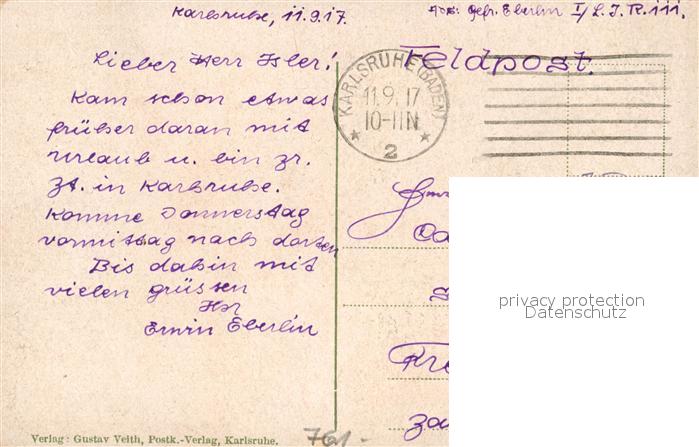 Karlsruhe, 11.9.17.
Abs: Gefr. Eberlin I/L. I. R. 111.
Feldpost.
Lieber Herr Isler!
Kam schon etwas
früher daran mit
Urlaub u. bin zr.
Zt. in Karlsruhe.
Komme Donnerstag
vormittag nach dorten
Bis dahin mit
vielen Grüssen
Ihr
Erwin Eberlin
KARLSRUHE (BADEN)
11.9.17
10-11N
2
privacy protection
Datenschutz
Verlag: Gustav Veith, Postk.-Verlag, Karlsruhe.
761.-